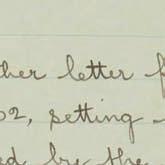 ther letter f
02, setting
ed by the